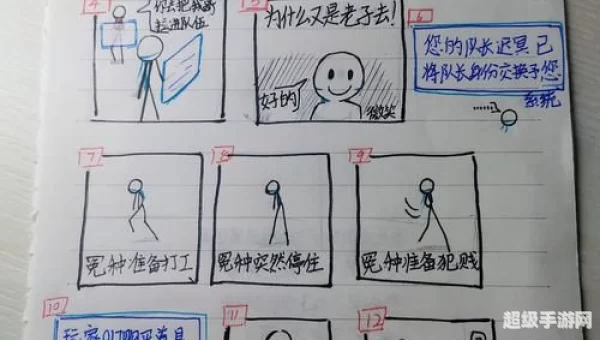 4
你去把我哥
拉进队伍
5
为什么又是老子去!
好的
微笑
6
您的队长迟冥已
将队长身份交换于您
系统
7
冤种准备打工
8
冤种突然停住
9
冤种准备犯贱
10
11
12
超级手游网